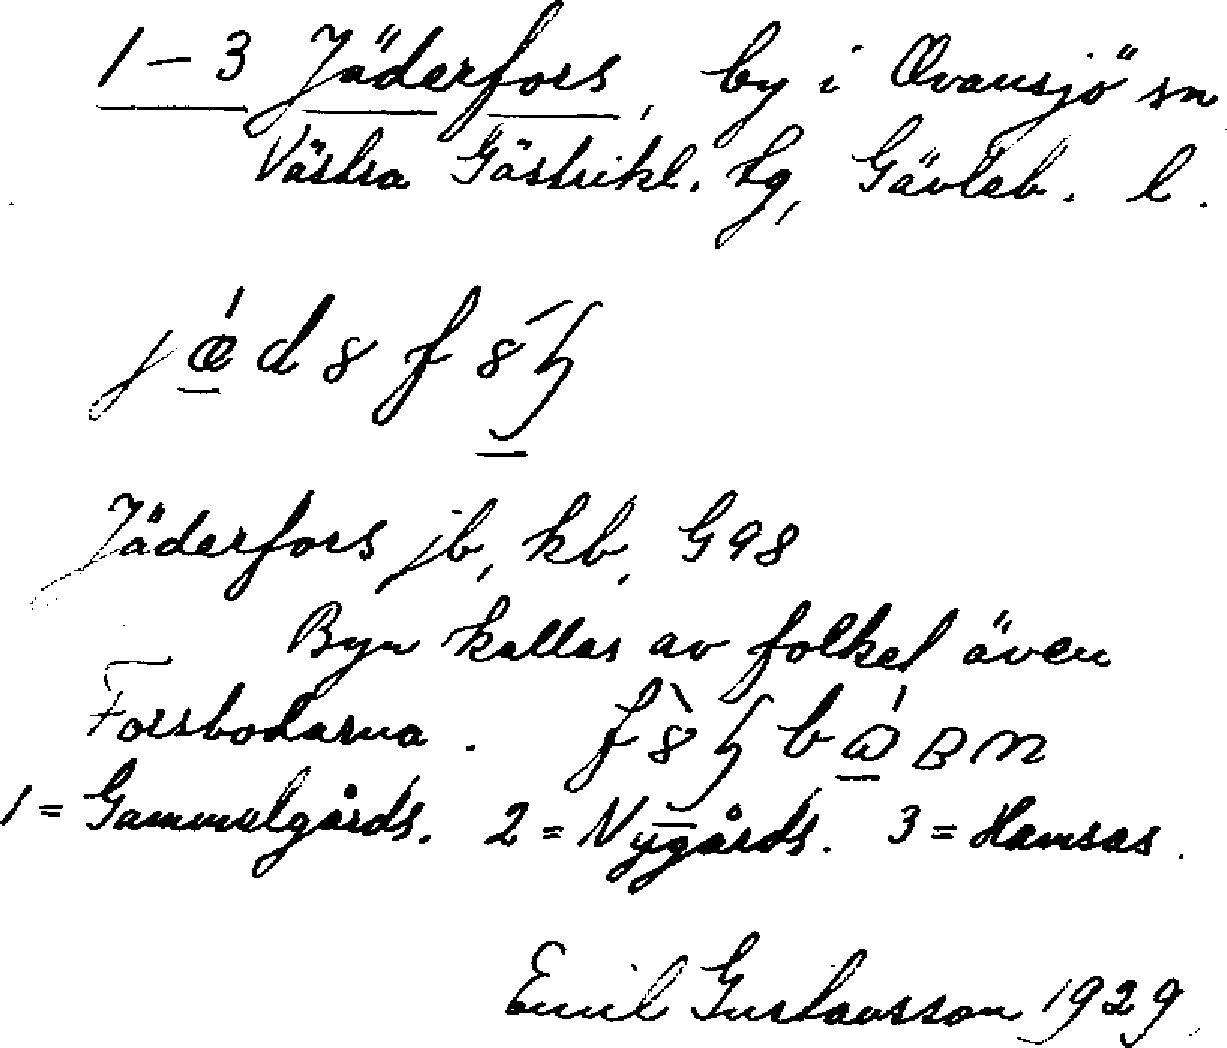 1-3 Jäderfors, by i Ovansjö sn
Västra Gästrikl. tg, Gävleb. l.
Jäderfors jb, kb, G98
Byn kallas av folket även
Forsbodarna.
1 = Gammelgårds. 2 = Nygårds. 3 = Hansas.
Emil Gustavsson 1929